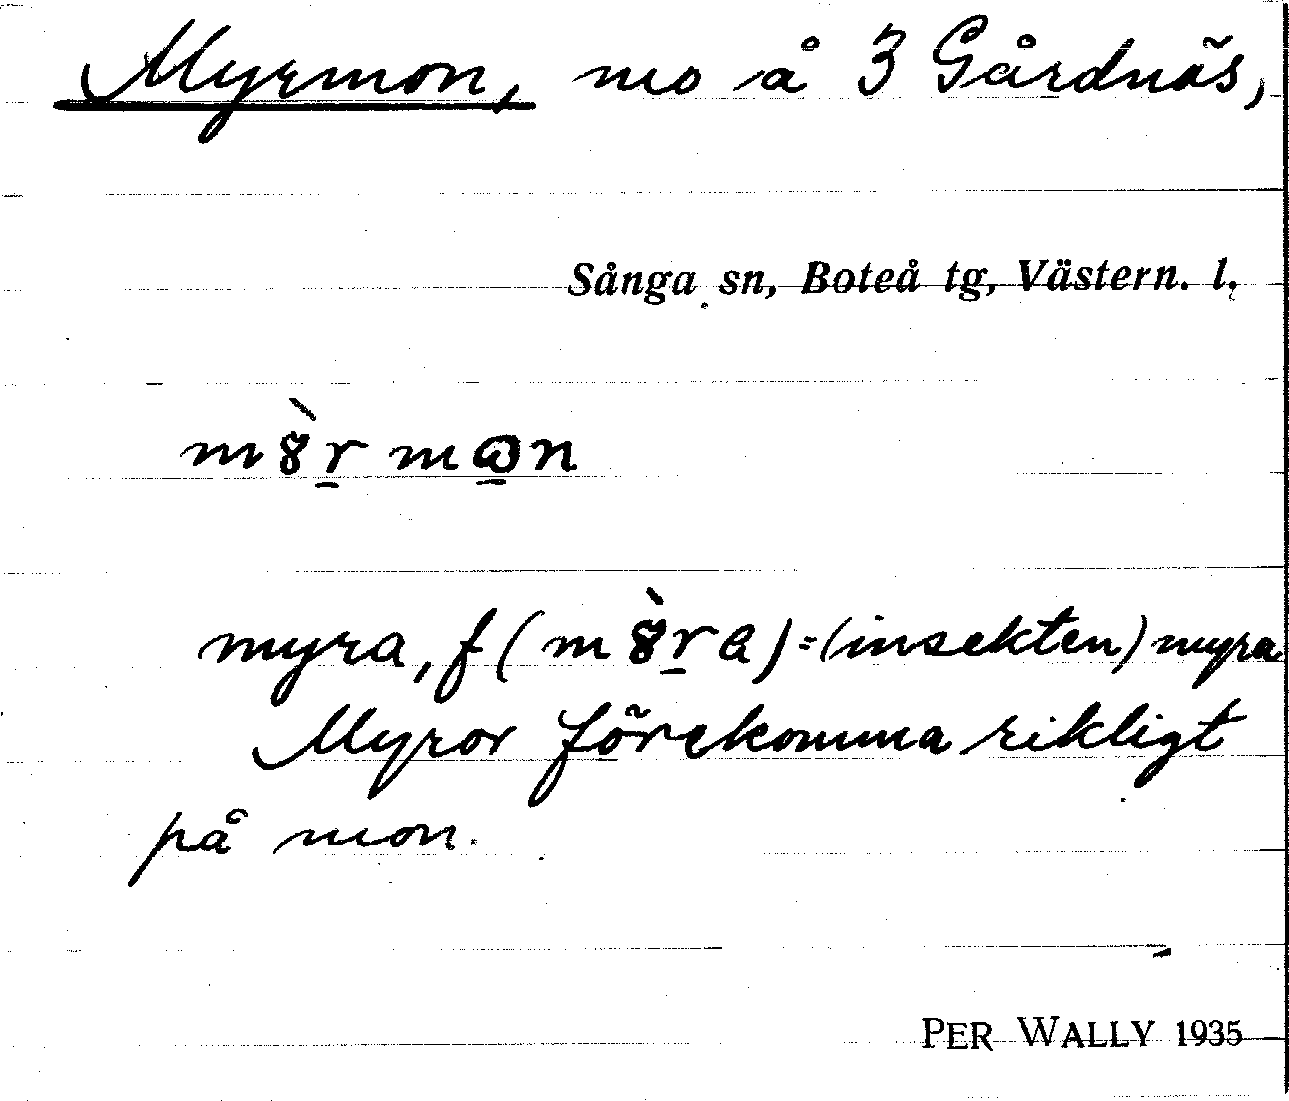 Myrmon, mo å 3 Gårdnäs,
Sånga sn, Boteå tg, Västern. l.
m8̀r̲ mɷ̲n
myra, f (m8̀r̲a) = (insekten) myra
Myror förekomma rikligt
på mon.
PER WALLY 1935